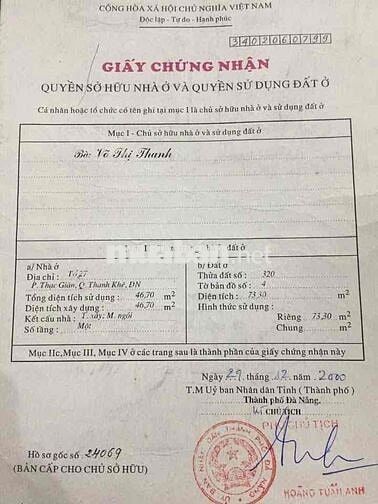 CỘNG HÒA XÃ HỘI CHỦ NGHĨA VIỆT NAM
Độc lập - Tự do - Hạnh phúc
3402060799
GIẤY CHỨNG NHẬN
QUYỀN SỞ HỮU NHÀ Ở VÀ QUYỀN SỬ DỤNG ĐẤT Ở
Cá nhân hoặc tổ chức có tên ghi tại mục I là chủ sở hữu nhà ở và sử dụng đất ở
Mục I - Chủ sở hữu nhà ở và sử dụng đất ở
Bà: Võ Thị Thanh
đất ở
a/ Nhà ở
Địa chỉ : Tổ 27
P. Thạc Gián, Q. Thanh Khê, ĐN
Tổng diện tích sử dụng : 46,70 m2
Diện tích xây dựng : 46,70 m2
Kết cấu nhà : T. xây; M. ngói
Số tầng : Một
b/ Đất ở
Thửa đất số: 320
Tờ bản đồ số : 4
Diện tích : 73,30 m2
Hình thức sử dụng:
Riêng : 73,30 m2
Chung : m2
Mục II, Mục III, Mục IV ở các trang sau là thành phần của giấy chứng nhận này
Ngày 29 tháng 12 năm 2000
T.M Uỷ ban Nhân dân Tỉnh (Thành phố)
Thành phố Đà Nẵng.
CHỦ TỊCH
PHÓ CHỦ TỊCH
Hồ sơ gốc số 24069
(BẢN CẤP CHO CHỦ SỞ HỮU)
HOÀNG TUẤN ANH